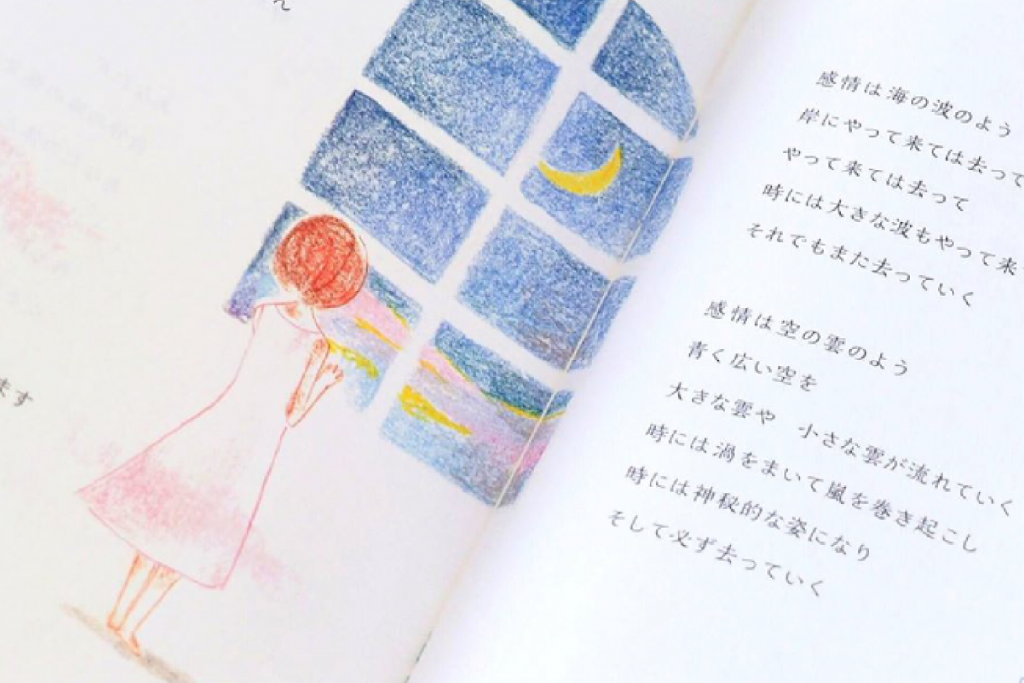 ん
ます
感情は海の波のよう
岸にやって来ては去って
やって来ては去って
時には大きな波もやって来
それでもまた去っていく
感情は空の雲のよう
青く広い空を
大きな雲や 小さな雲が流れていく
時には渦をまいて嵐を巻き起こし
時には神秘的な姿になり
そして必ず去っていく